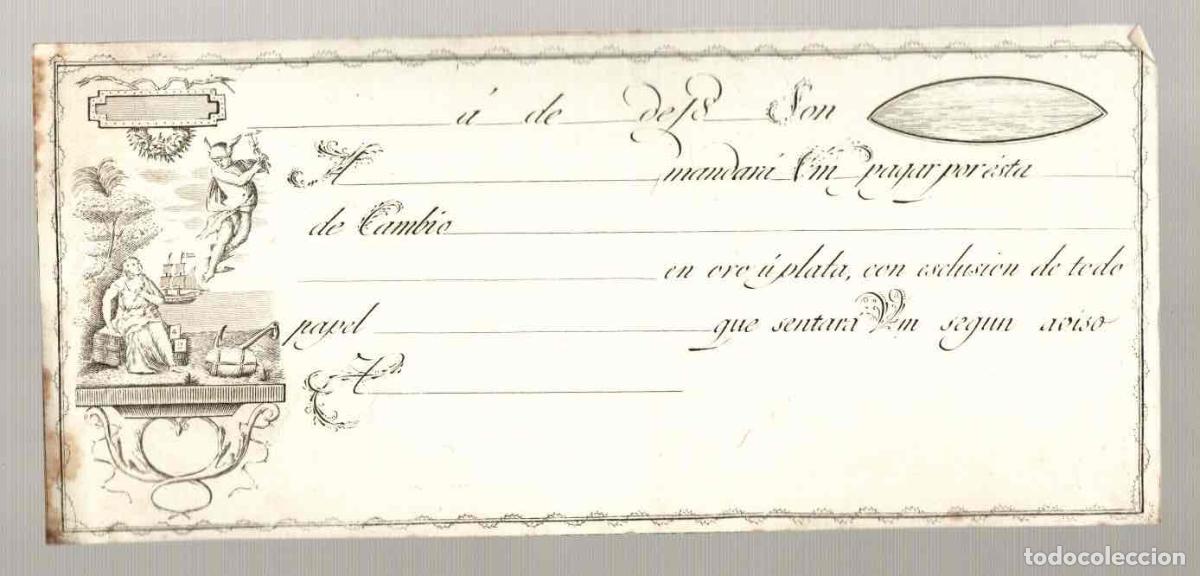 á de de 18 Son
A mandará Vm pagar por ésta
de Cambio
en oro ú plata, con esclusion de todo
papel que sentara Vm segun aviso
A
todocoleccion